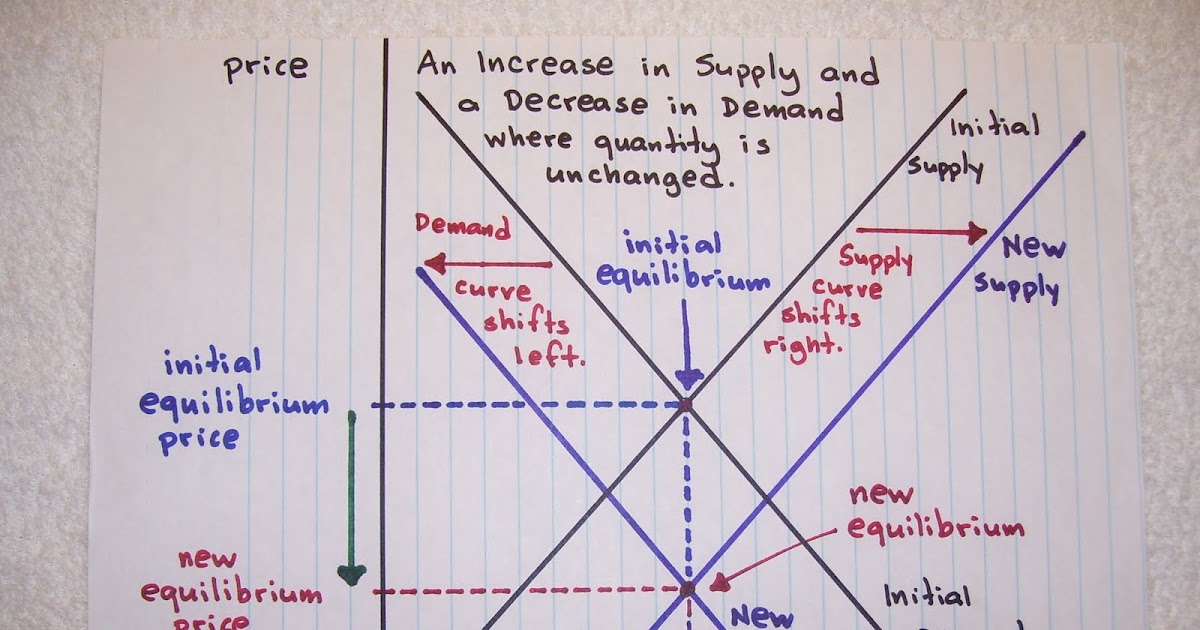 price
An Increase in Supply and
a Decrease in Demand
where quantity is
unchanged.
Initial
supply
Demand
curve
shifts
left.
initial
equilibrium
Supply
curve
shifts
right.
New
supply
initial
equilibrium
price
new
equilibrium
new
equilibrium
price
New
Initial